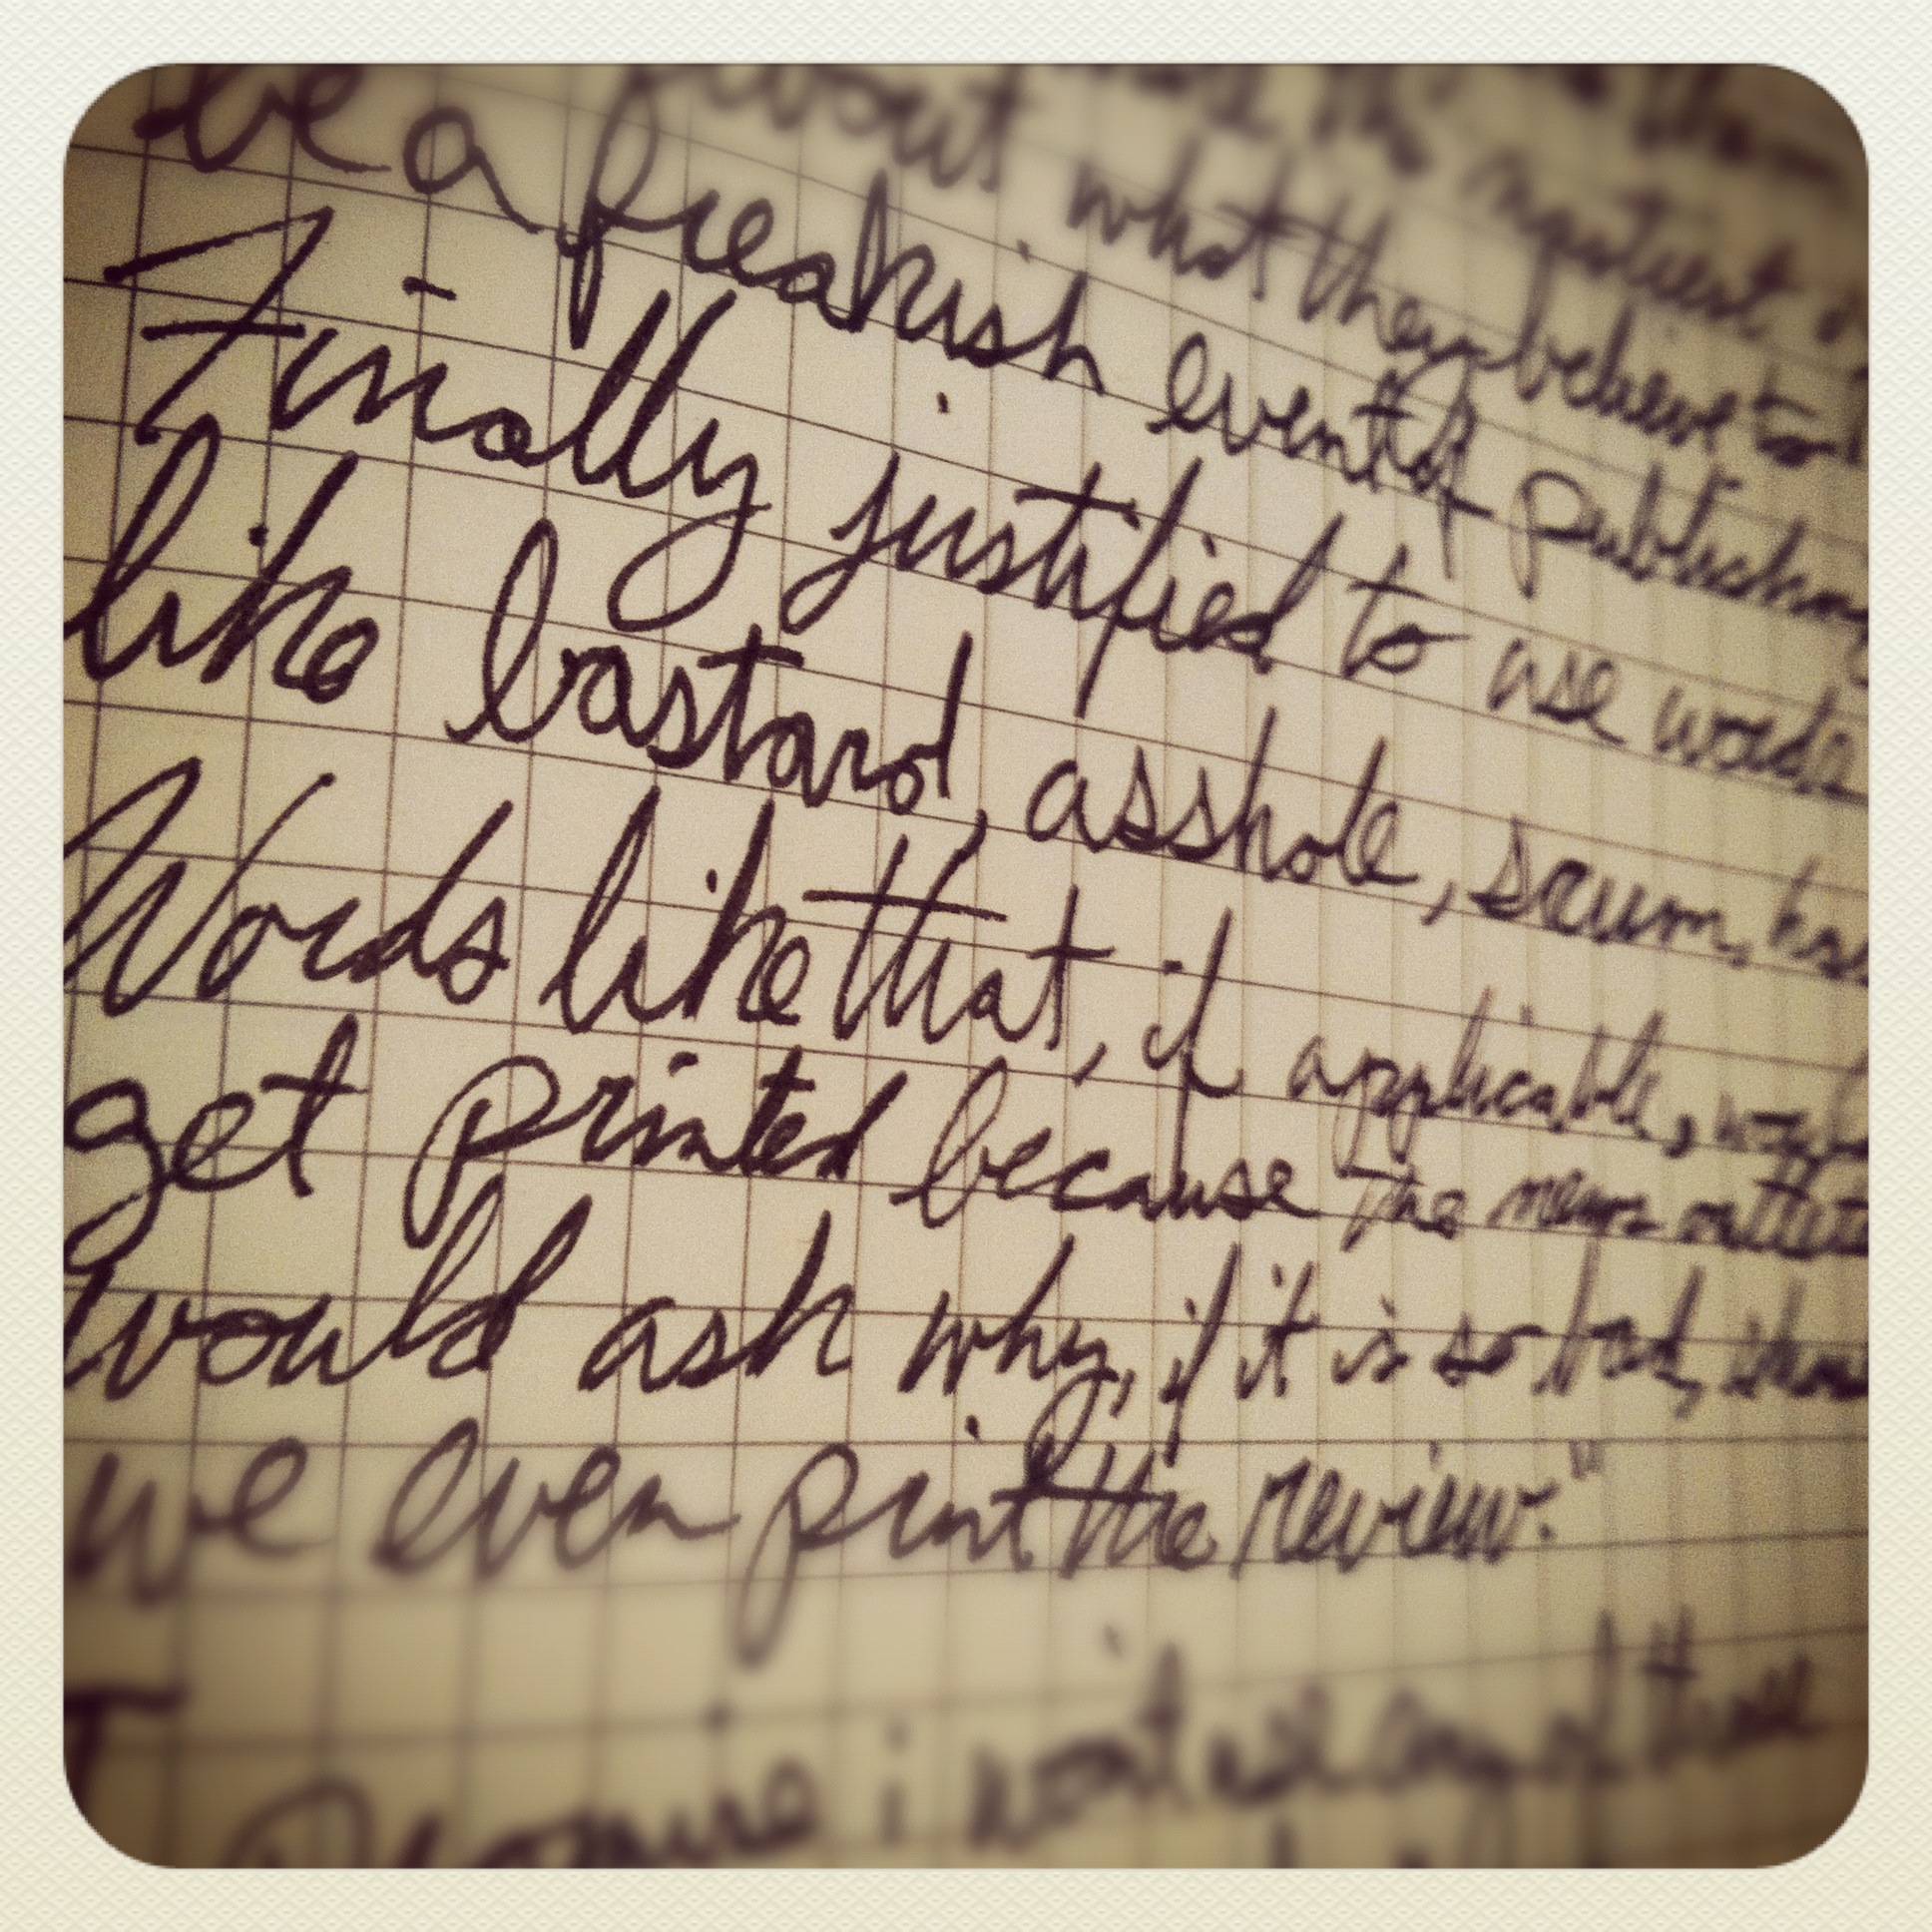 about what they believe to
be a freakish event of publishing
Finally justified to use words
like bastard, asshole, scum,
Words like that, if applicable,
get printed because the news outlets
would ask why, if it is so bad,
we even print the review."
Promise i wont use any of these